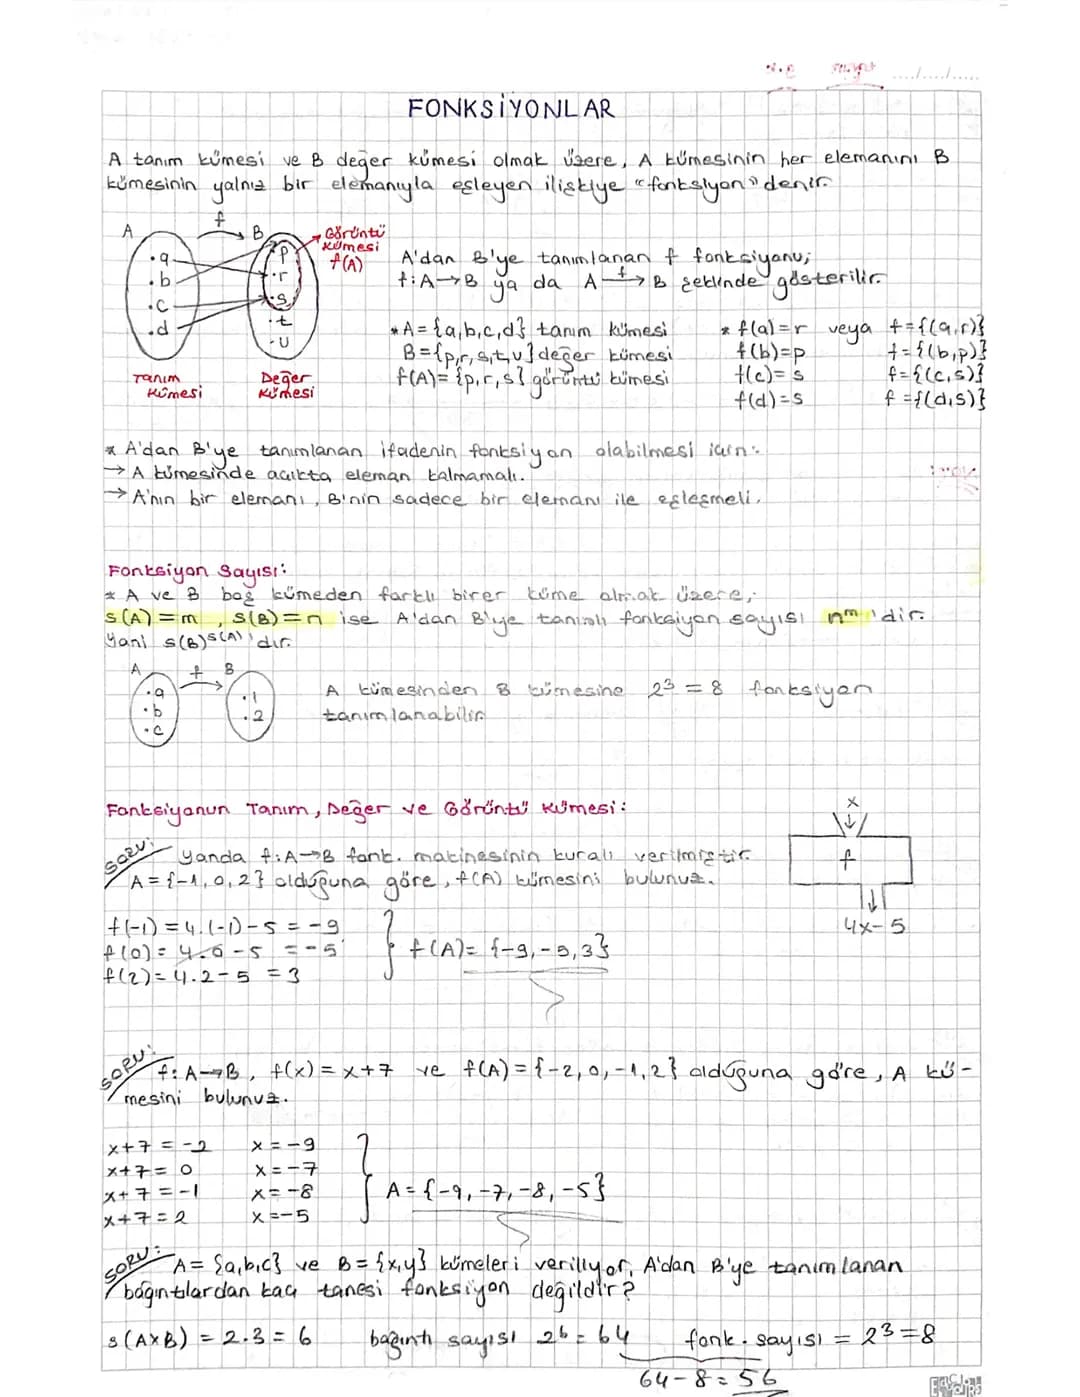 FONKSİYONLAR
A tanım kümesi ve B değer kümesi olmak üzere, A kümesinin her elemanını B
kümesinin yalnız bir elemanıyla eşleyen ilişkiye "fonksiyon" denir.
A f B
.a .b .c .d
p .r .s .t .u
Görüntü
kümesi
f(A)
Tanım
kümesi
Değer
kümesi
A'dan B'ye tanımlanan f fonksiyonu;
f: A→B ya da A f→ B şeklinde gösterilir.
* A={a,b,c,d} tanım kümesi
B={p,r,s,t,u} değer kümesi
f(A)={p,r,s} görüntü kümesi
* f(a)=r veya f={(a,r)}
f(b)=p f={(b,p)}
f(c)=s f={(c,s)}
f(d)=s f={(d,s)}
* A'dan B'ye tanımlanan ifadenin fonksiyon olabilmesi için:
→ A kümesinde açıkta eleman kalmamalı.
→ A'nın bir elemanı, B'nin sadece bir elemanı ile eşleşmeli.
Fonksiyon Sayısı:
* A ve B boş kümeden farklı birer küme olmak üzere;
s(A)=m, s(B)=n ise A'dan B'ye tanımlı fonksiyon sayısı nᵐ 'dir.
Yani s(B)ˢ⁽ᴬ⁾ 'dır.
A f B
.a .b .c
.1 .2
A kümesinden B kümesine 2³ = 8 fonksiyon
tanımlanabilir.
Fonksiyonun Tanım, Değer ve Görüntü Kümesi:
SORU: Yanda f:A→B fonk. makinesinin kuralı verilmiştir.
A={-1,0,2} olduğuna göre, f(A) kümesini bulunuz.
x
f
4x-5
f(-1)=4.(-1)-5 = -9
f(0)=4.0-5 = -5
f(2)=4.2-5 = 3
f(A)={-9,-5,3}
SORU: f: A→B, f(x)=x+7 ve f(A)={-2,0,-1,2} olduğuna göre, A kü-
mesini bulunuz.
x+7=-2 x=-9
x+7=0 x=-7
x+7=-1 x=-8
x+7=2 x=-5
A={-9,-7,-8,-5}
SORU: A={a,b,c} ve B={x,y} kümeleri veriliyor. A'dan B'ye tanımlanan
bağıntılardan kaç tanesi fonksiyon değildir?
s(AxB) = 2.3 = 6 bağıntı sayısı 2⁶ = 64 fonk. sayısı = 2³=8
64-8=56